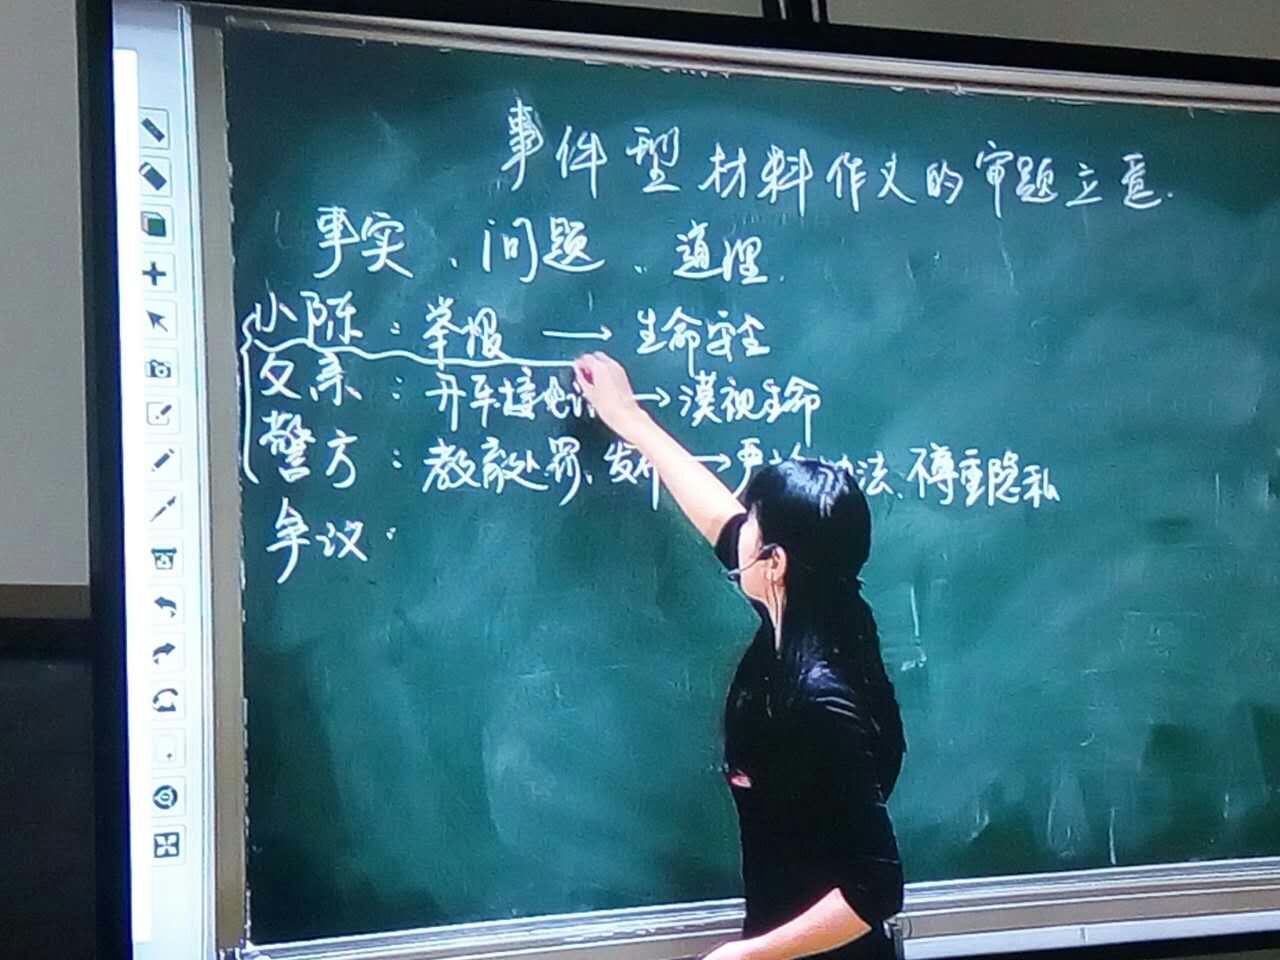 事件型材料作文的审题立意.
事实、问题、道理.
小陈：举报→生命安全
父亲：开车接电话→漠视生命
警方：教育处罚、发布→严 执法、尊重隐私
争议：